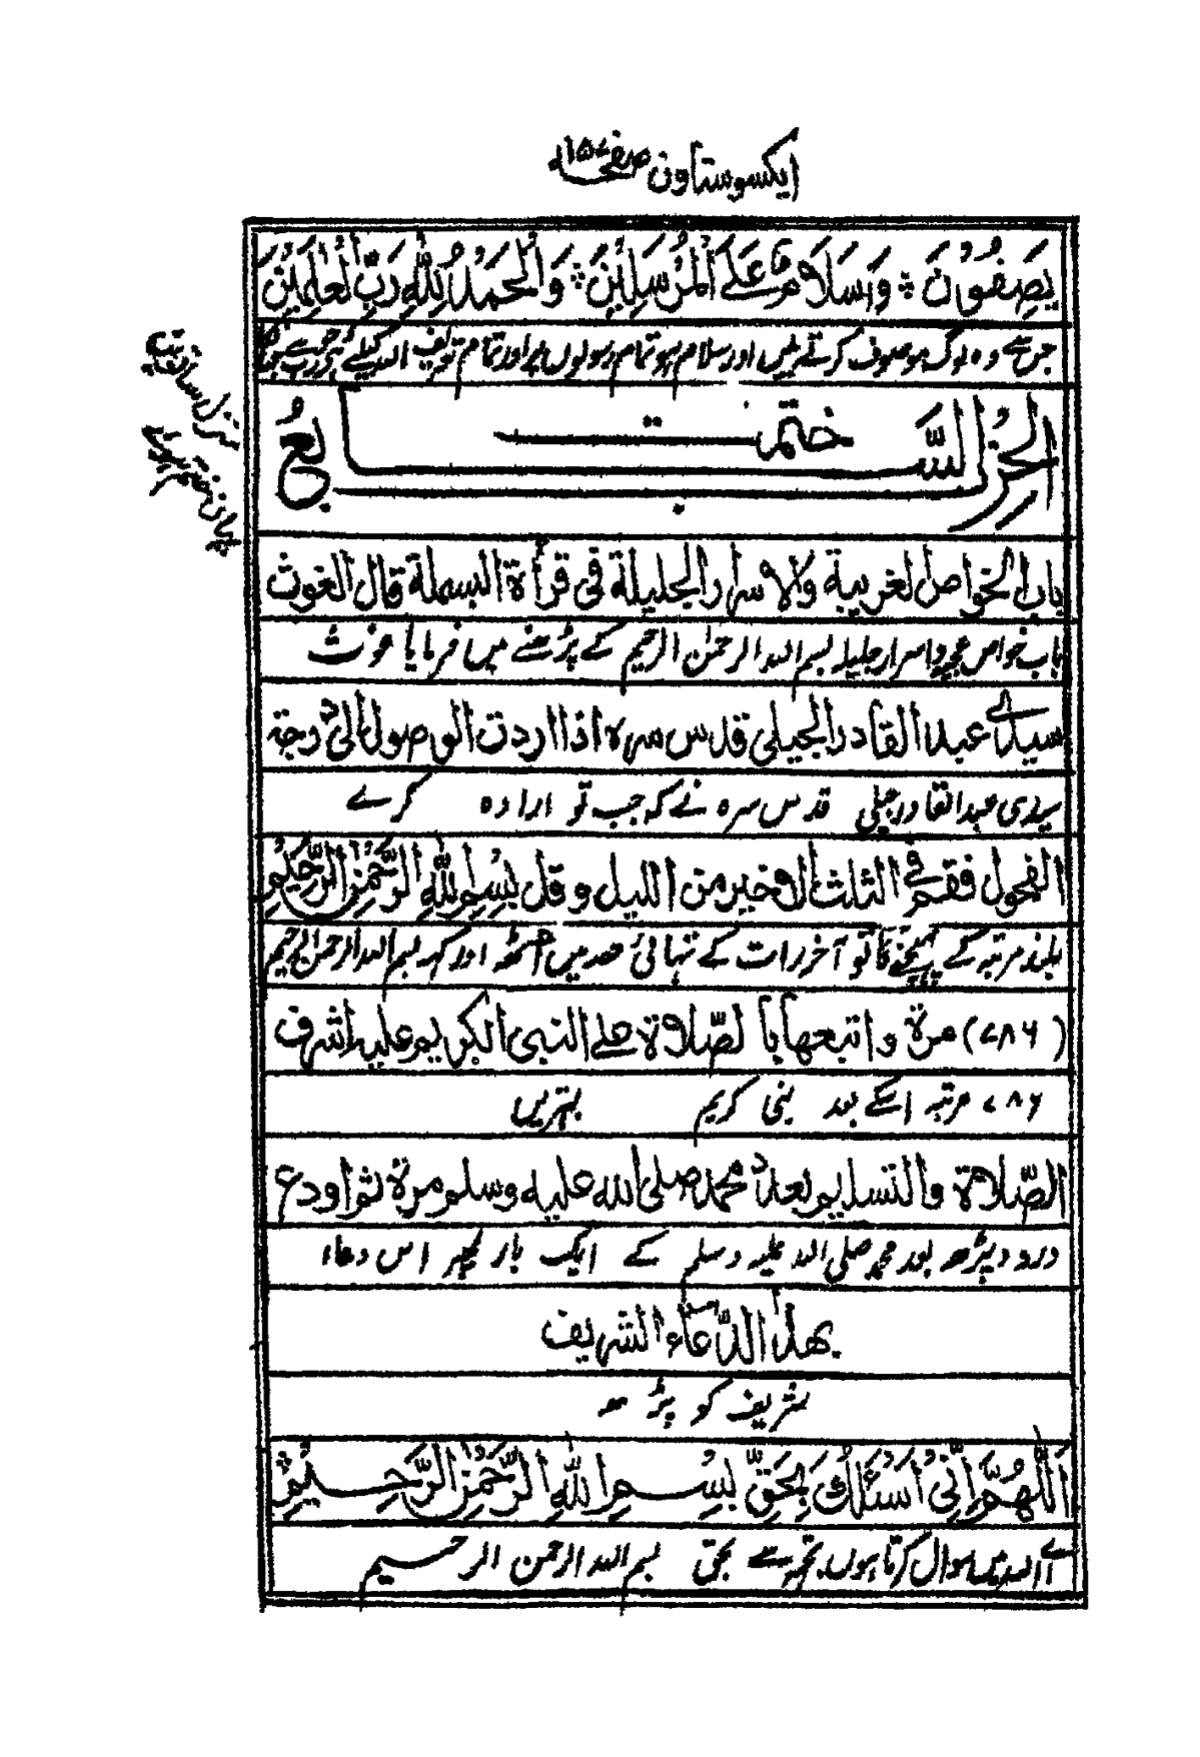 ایکسوستاون صفحہ ۱۵۷
يَصِفُوْنَ ۞ وَسَلَامٌ عَلَى الْمُرْسَلِيْنَ ۞ وَالْحَمْدُ لِلّٰهِ رَبِّ الْعٰلَمِيْنَ
جس سے وہ لوگ موصوف کرتے ہیں اور سلام ہو تمام رسولوں پر اور تمام تعریف اللہ کیلئے ہے جو رب
منزل سا
الحزب السابع ختمت
باب الخواص الغريبة والاسرار الجليلة فى قرأة البسملة قال الغوث
باب خواص عجیبہ و اسرار جلیلہ بسم اللہ الرحمٰن الرحیم کے پڑھنے میں فرمایا غوث
سيدى عبد القادر الجيلى قدس سره اذا اردت الوصول الىٰ درجة
سیدی عبد القادر جیلی قدس سرہ نے کہ جب تو ارادہ کرے
الفحول فقم فى الثلث الاخير من الليل وقل بِسْمِ اللّٰهِ الرَّحْمٰنِ الرَّحِيْمِ
بلند مرتبہ کے پہنچنے کا تو آخر رات کے تہائی حصہ میں اٹھ اور کہہ بسم اللہ الرحمن الرحیم
(۷۸۶) مرة واتبعها بالصّلاة على النبى الكريم عليه اشرف
۷۸۶ مرتبہ اسکے بعد نبی کریم بہترین
الصّلاة والتسليم بعد محمد صلى الله عليه وسلم مرة ثم اودع
درود پڑھ بعد محمد صلی اللہ علیہ وسلم کے ایک بار پھر اس دعاء
بهذا الدّعاء الشريف
شریف کو پڑھ
اَللّٰهُمَّ اِنِّىْ اَسْئَلُكَ بِحَقِّ بِسْمِ اللّٰهِ الرَّحْمٰنِ الرَّحِيْمِ
اے اللہ میں سوال کرتا ہوں تجھ سے بحق بسم اللہ الرحمن الرحیم